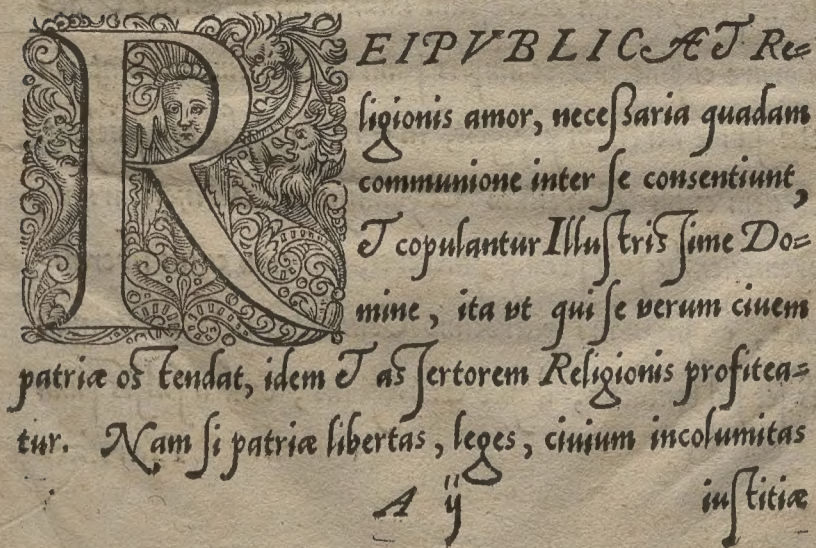 REIPVBLICÆ & Re=
ligionis amor, neceßaria quadam
communione inter ſe consentiunt,
& copulantur Illuſtrisſime Do=
mine, ita vt qui ſe verum ciuem
patriæ ostendat, idem & asſertorem Religionis profitea=
tur. Nam ſi patriæ libertas, leges, ciuium incolumitas
A ij iuſtitiæ